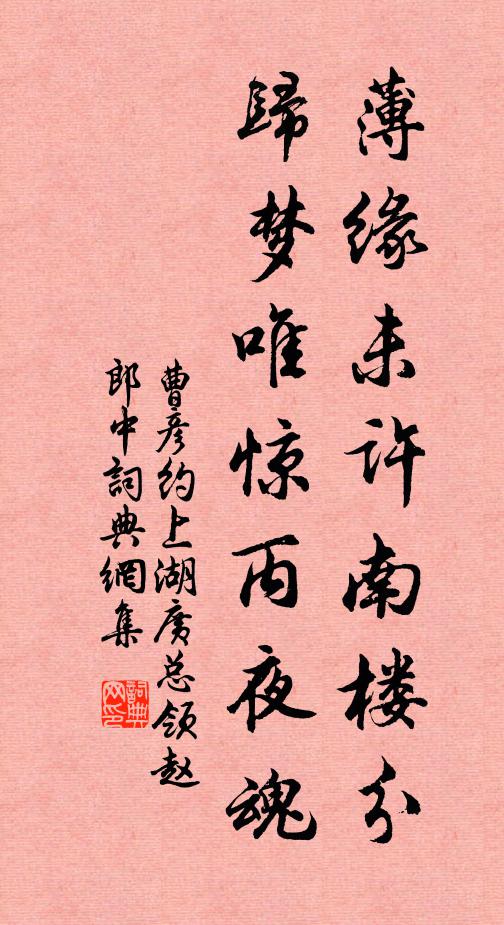 薄缘未许南楼分
歸梦唯惊丙夜魂
曹彦约上湖广总领赵
郎中詞典網集
詞典网印